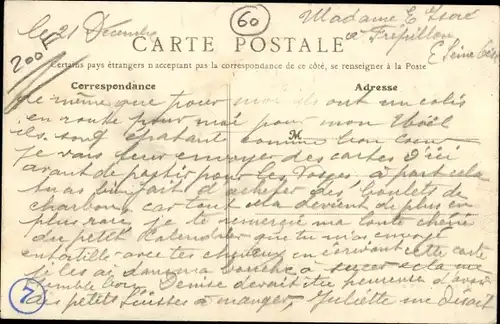 le 21 Décembre
60
Madame E Isoré
à Frépillon
Seine Oise
200F
CARTE POSTALE
Certains pays étrangers n'acceptant pas la correspondance de ce côté, se renseigner à la Poste
Correspondance
Adresse
de même que pour moi ils ont un colis
en route pour moi pour mon Noël
M
ils sont épatants comme bon coeur
je vais leur envoyer des cartes d'ici
avant de partir pour les Vosges à part cela
tu as bien fait d'acheter des boulets de
charbon car tout cela devient de plus en
plus rare, je te remercie ma toute chérie
du petit Kalendrier que tu m'as envoyé
entortillé avec tes cheveux en écrivant cette carte
je les ai dans ma bouche à sucer cela me
semble bon. Denise devait être heureuse d'avoir
des petits Suisses à manger, Juliette me disait
7